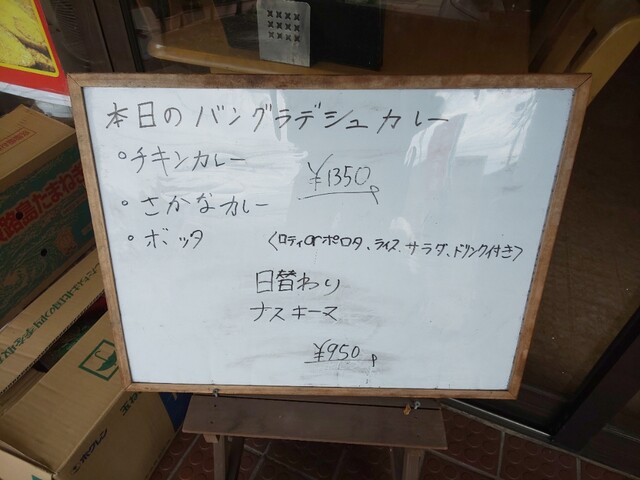 本日のバングラデシュカレー
・チキンカレー
¥1350
・さかなカレー
・ボッタ
〈ロティorポロタ、ライス、サラダ、ドリンク付き〉
日替わり
ナスキーマ
¥950
路島たまねぎ
ホクレン